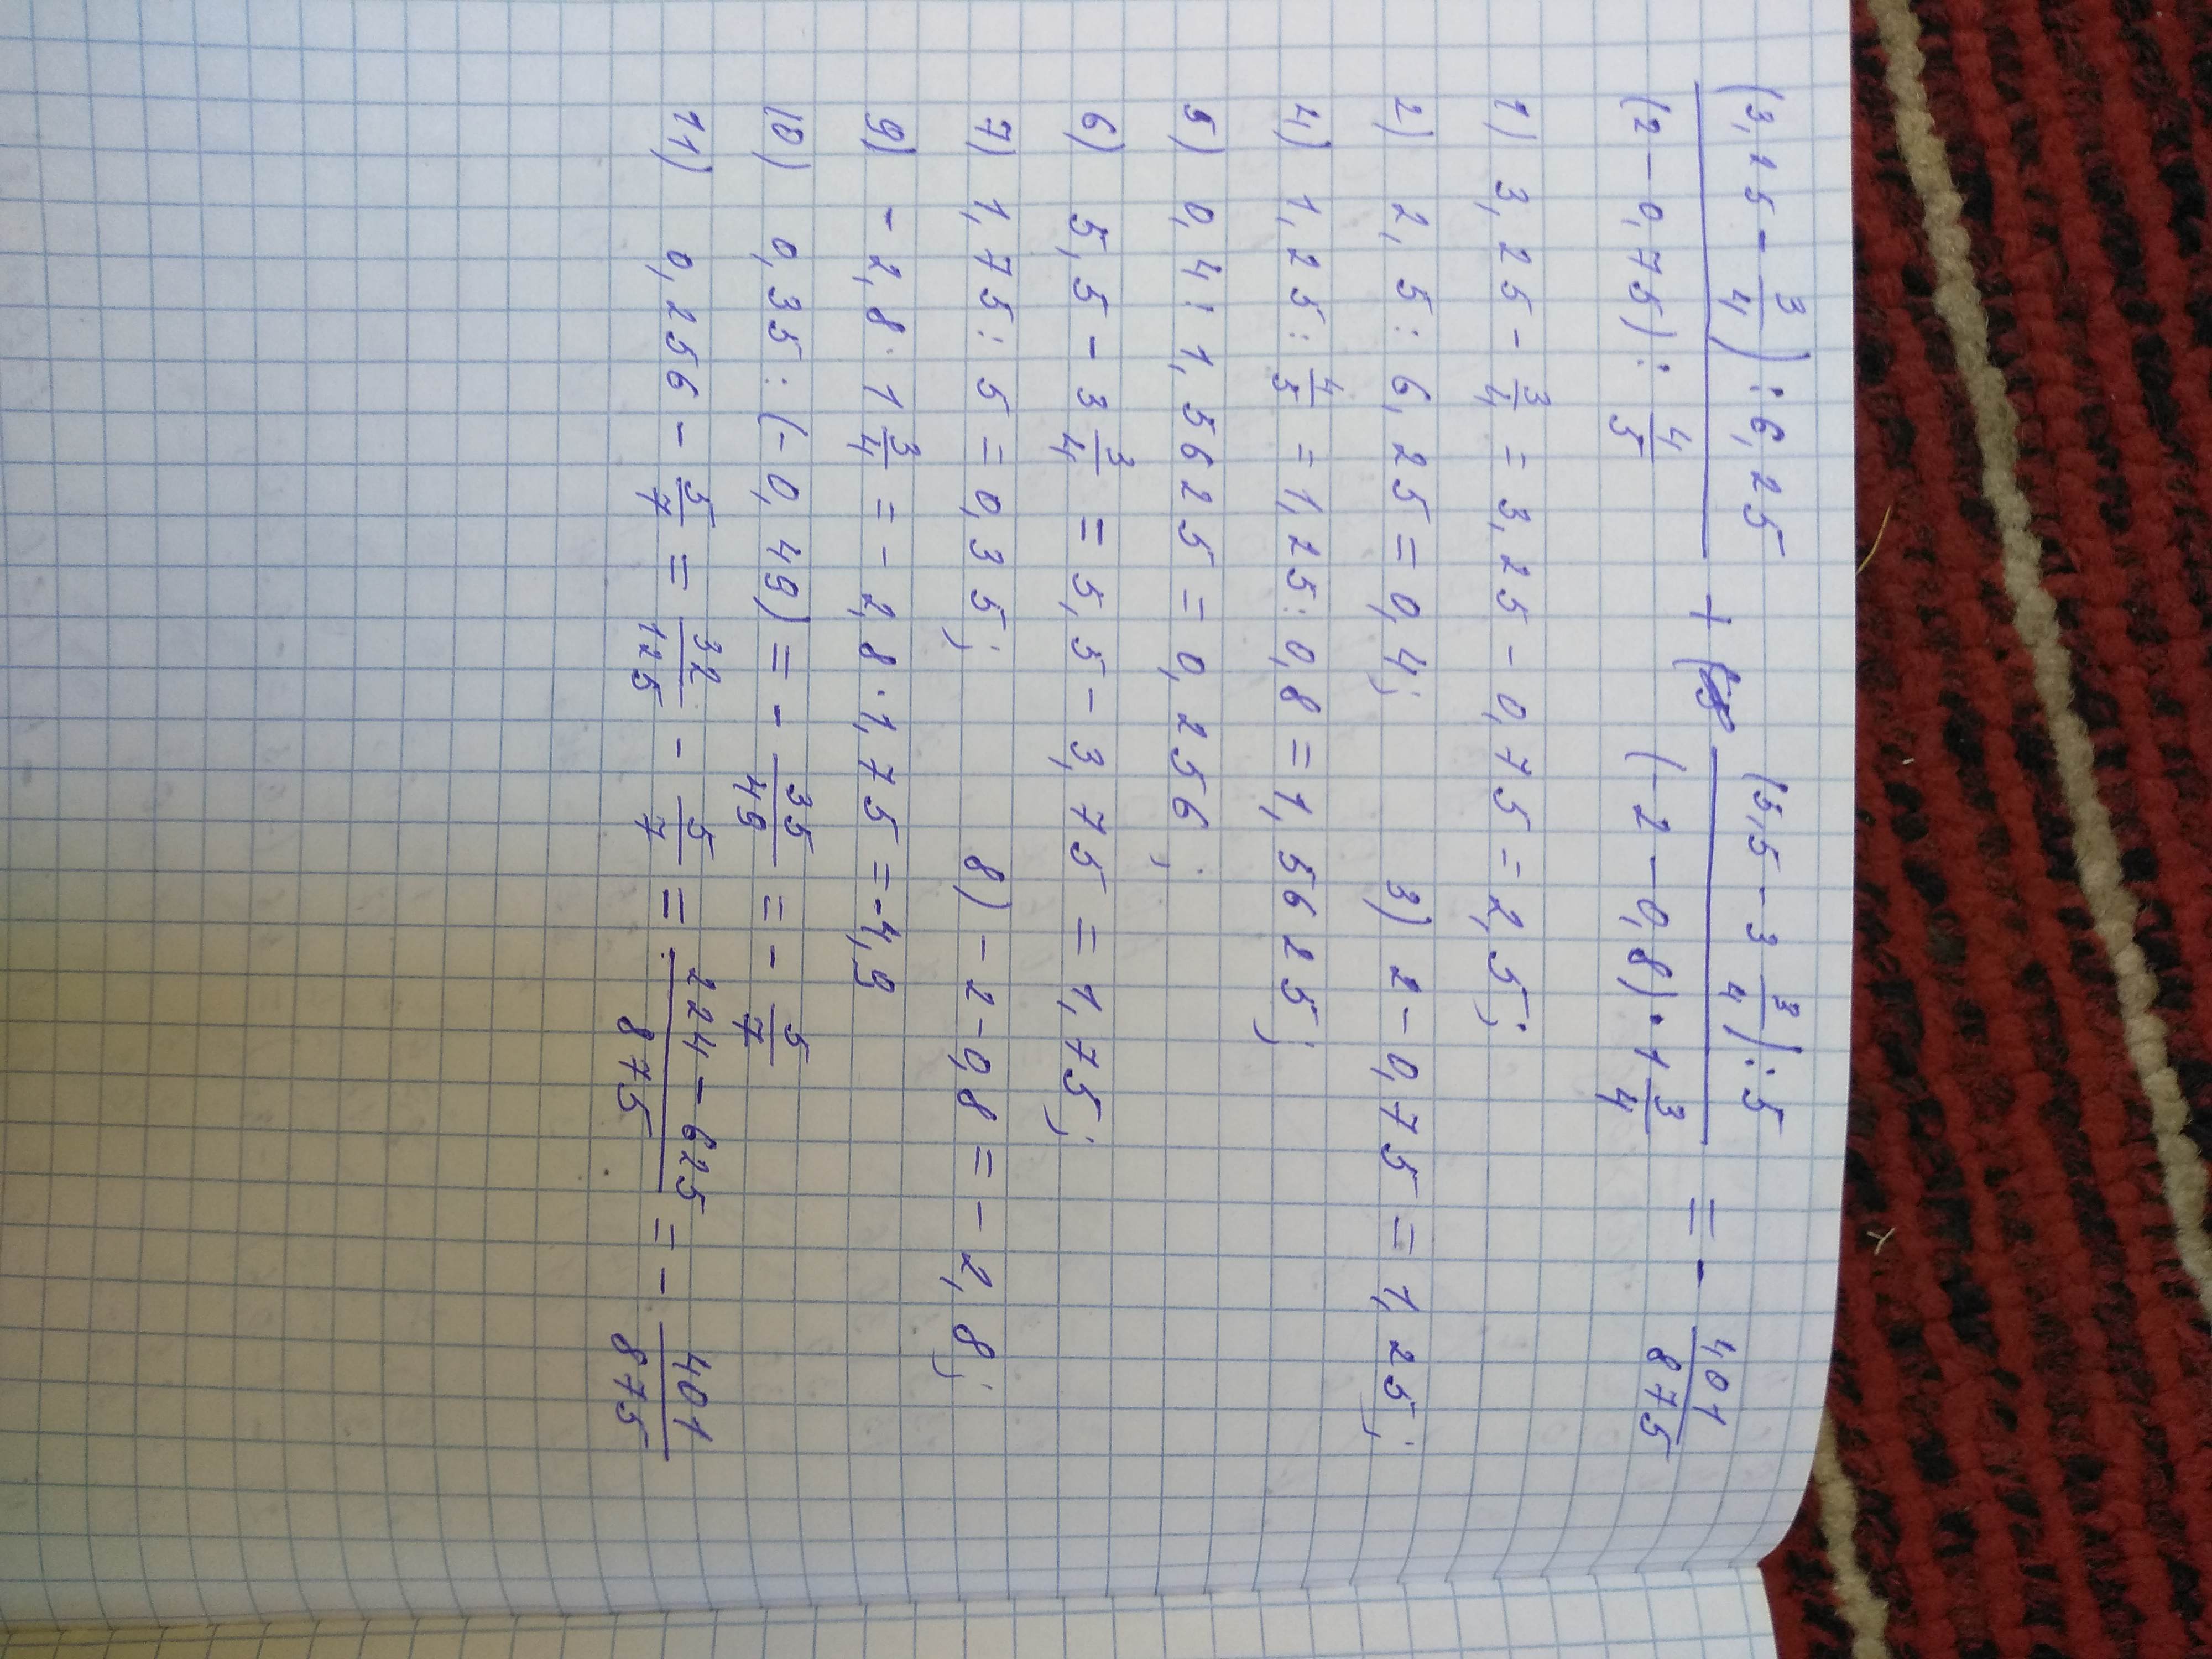 (3,25 - 3/4) : 6,25 / (2 - 0,75) : 4/5 + (5,5 - 3 3/4) : 5 / (-2 - 0,8) · 1 3/4 = - 401/875
1) 3,25 - 3/4 = 3,25 - 0,75 = 2,5;
2) 2,5 : 6,25 = 0,4; 3) 2 - 0,75 = 1,25;
4) 1,25 : 4/5 = 1,25 : 0,8 = 1,5625;
5) 0,4 : 1,5625 = 0,256;
6) 5,5 - 3 3/4 = 5,5 - 3,75 = 1,75;
7) 1,75 : 5 = 0,35; 8) -2 - 0,8 = -2,8;
9) -2,8 · 1 3/4 = -2,8 · 1,75 = -4,9
10) 0,35 : (-0,49) = - 35/49 = - 5/7
11) 0,256 - 5/7 = 32/125 - 5/7 = 224 - 625/875 = - 401/875